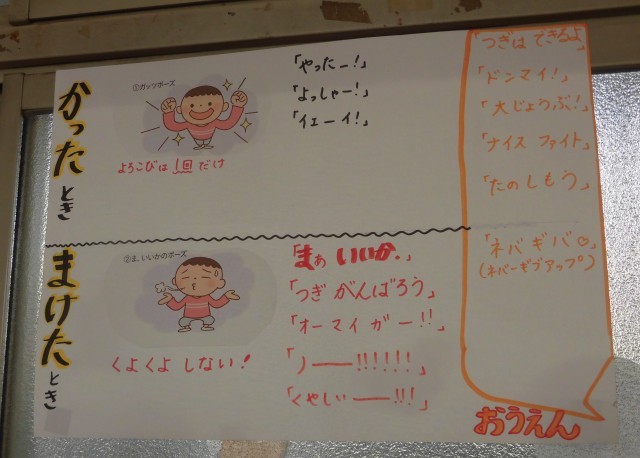 かったとき
①ガッツポーズ
よろこびは1回だけ
「やったー！」
「よっしゃー！」
「イェーイ！」
まけたとき
②ま、いいかのポーズ
くよくよしない！
「まぁいいか.」
「つぎがんばろう」
「オーマイガー!!」
「ノー!!!!!!」
「くやしぃー!!!」
「つぎはできるよ」
「ドンマイ！」
「大じょうぶ！」
「ナイスファイト」
「たのしもう」
「ネバギバ♡」
(ネバーギブアップ)
おうえん